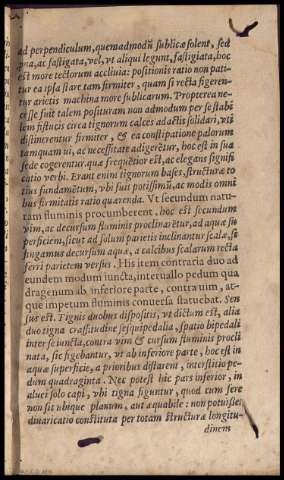 ad perpendiculum, quemadmodũ sublicæ solent, sed
pna, ac fastigata, vel, vt aliqui legunt, fastigiata, hoc
est more tectorum accliuia: positionis ratio non pati-
tur ea ipsa stare tam firmiter, quam si recta figeren-
tur arietis machina more sublicarum. Propterea ne-
cesse fuit talem posituram non admodum per se stabi
lem fistucis circa tignorum calces adactis solidari, vti
distinerentur firmiter, & ea constipatione palorum
tamquam ui, ac necessitate adigerẽtur, hoc est in sua
sede cogerentur. quæ frequẽtior est, ac elegans signifi
catio verbi. Erant enim tignorum bases, structuræ to
tius fundamẽtum, vbi suit potissimũ, ac modis omni
bus firmitatis ratio quærenda. Vt secundum natu-
ram fluminis procumberent, hoc est secundum
vim, ac decursum fluminis proclinarẽtur, ad aquæ su
perficiem, sicut ad solum parietis inclinantur scalæ, si
fingamus decursum aquæ, a calcibus scalarum recta
ferri parietem versus. His item contraria duo ad
eundem modum iuncta, interuallo pedum qua
dragenum ab inferiore parte, contra uim, at-
que impetum fluminis conuersa statuebat. Sen
sus est. Tignis duobus dispositis, vt dictum est, alia
duo tigna crassitudine sesquipedalia, spatio bipedali
inter se iuncta, contra vim & cursum fluminis procli
nata, sic figebantur, vt ab inferiore parte, hoc est in
aquæ superficie, a prioribus distarent, interstitio pe-
dum quadraginta. Nec potest hic pars inferior, in
aluei solo capi, vbi tigna figuntur, quod cum fere
non sit ubique planum, aut æquabile: non potuisset
dinaricatio constituta per totam structuræ longitu-
dinem